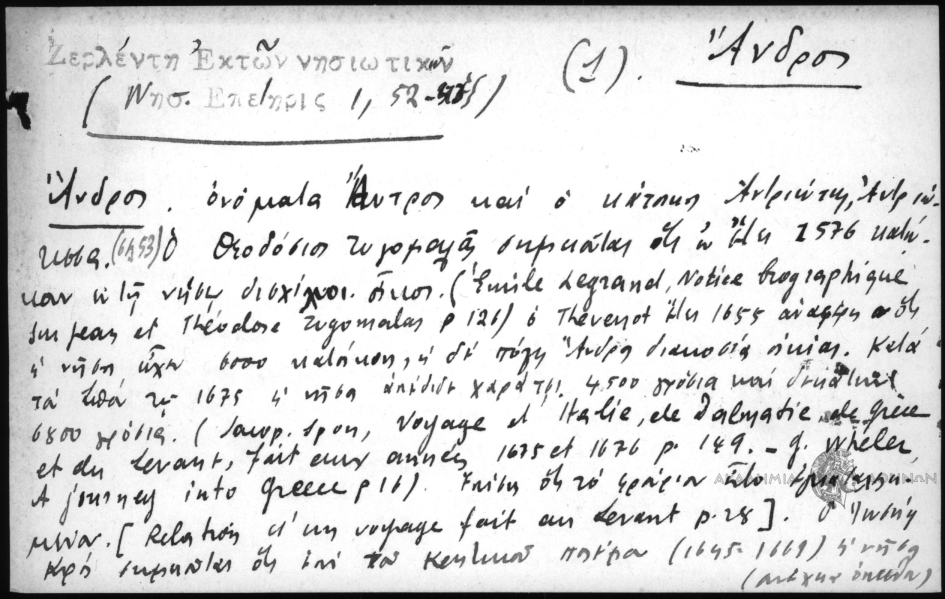 Ζερλέντη Ἐκ τῶν νησιωτικῶν (1). Ἄνδρος
(Νησ. Ἐπετηρὶς 1, 52-
Ἄνδρος. ὀνόματα Ἄντρος καὶ ὁ κάτοικος Ἀντριώτης, Ἀντριώ-
τισσα. (σελ 53) Ὁ Θεοδόσιος Ζυγομαλᾶς σημειοῦται ὅτι ἐν ἔτει 1576 κατῴ-
κουν ἐν τῇ νήσῳ δισχίλιοι (Émile Legrand, Notice biographique
sur Jean et Théodose Zygomalas p 126) ὁ Thévenot ἔτει 1655 ἀναφέρει ὅτι
ἡ νῆσος ἔχει 5000 κατοίκους, ἡ δὲ πόλις Ἄνδρος διακοσίας οἰκίας. Κατὰ
τὰ 1675 ἡ νῆσος ἀπέδιδε χαράτσι 4,500 γρόσια καὶ
6800 γρόσια. (Jacop. Spon, Voyage d'Italie, de Dalmatie, de Grèce
et du Levant, fait aux années 1675 et 1676 p. 149. - G. Wheler
A journey into Greece p 16). ὅτι τὸ
[Relation d'un voyage fait au Levant p. 28]. Ὁ
σημειοῦται ὅτι ἐπὶ τοῦ Κρητικοῦ πολέμου (1645-1669) ἡ νῆσος
ΑΚΑΔΗΜΙΑ ΑΘΗΝΩΝ